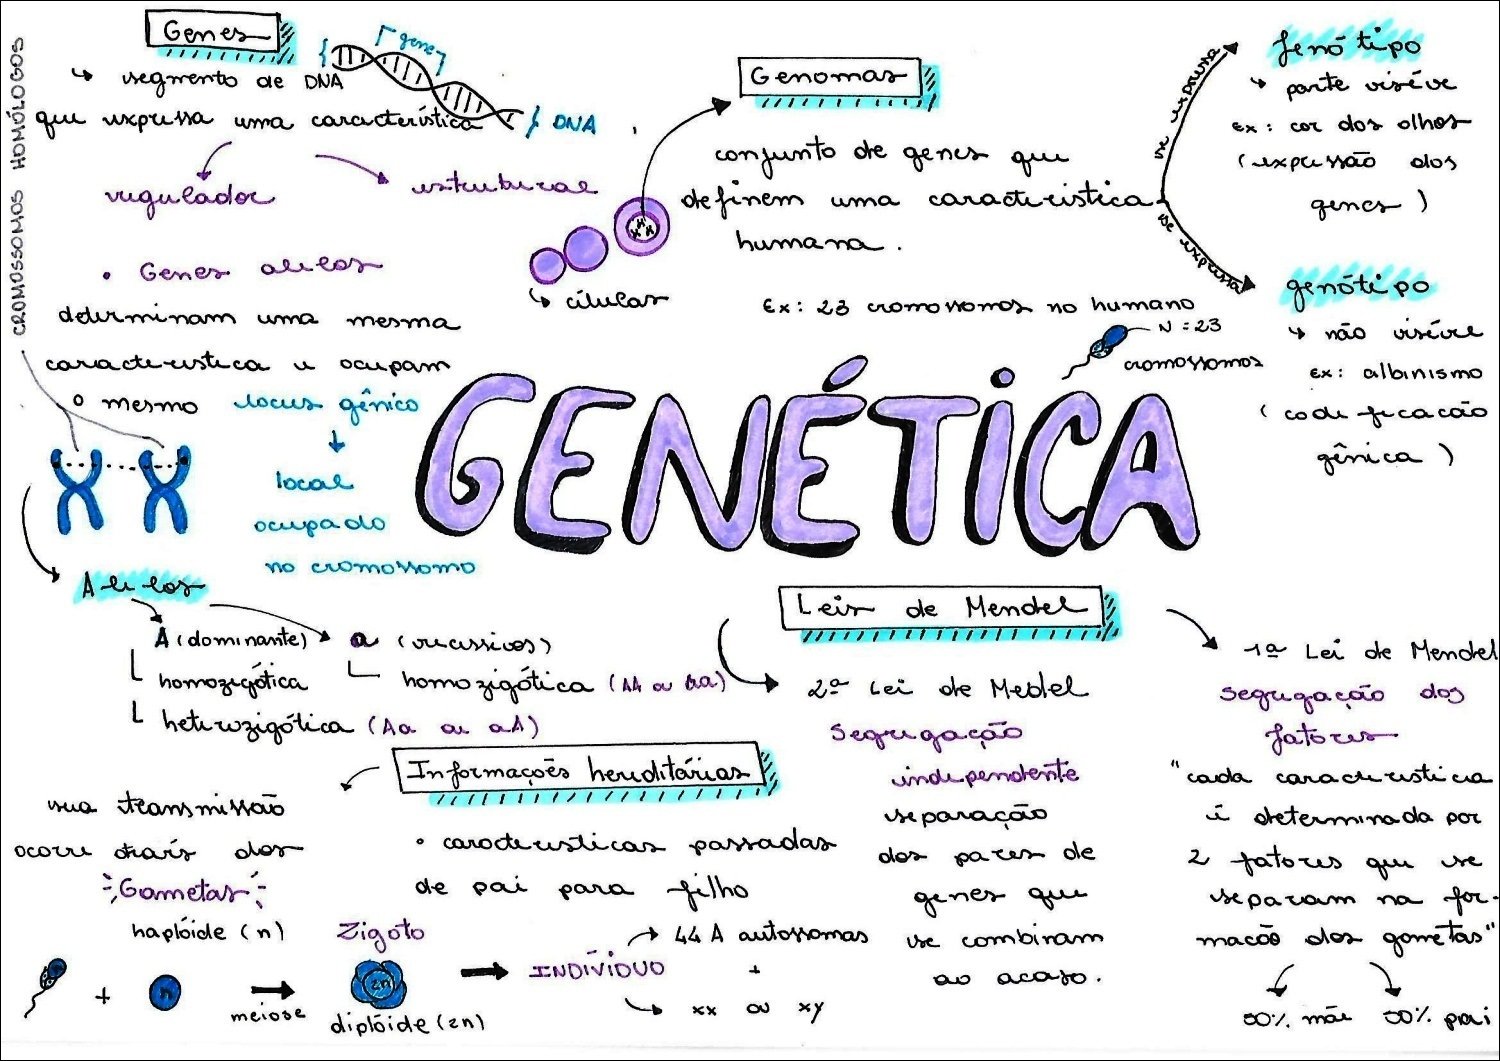 CROMOSSOMOS HOMÓLOGOS
Genes
↳ segmento de DNA
que expressa uma característica
{ [gene]
} DNA
regulador
estrutural
• Genes alelos
determinam uma mesma
característica e ocupam
o mesmo locus gênico
local
ocupado
no cromossomo
Alelos
A (dominante)
homozigótica
heterozigótica (Aa ou aA)
a (recessivos)
homozigótica (AA ou aa)
células
Genomas
conjunto de genes que
definem uma característica
humana.
Ex: 23 cromossomos no humano
N = 23
cromossomos
se expressa
fenótipo
↳ parte visíve
ex: cor dos olhos
(expressão dos
genes)
se expressa
genótipo
↳ não visíve
ex: albinismo
(codificação
gênica)
GENÉTICA
Leis de Mendel
1ª Lei de Mendel
segregação dos
fatores
"cada característica
é determinada por
2 fatores que se
separam na for-
macão dos gametas"
50% mãe
50% pai
2ª Lei de Medel
Segregação
independente
separação
dos pares de
genes que
se combinam
ao acaso.
Informações hereditárias
• características passadas
de pai para filho
sua transmissão
ocorre atrais dos
Gametas
haplóide (n)
+
n
meiose
Zigoto
2n
diplóide (2n)
INDÍVIDUO
44 A autossomas
+
xx ou xy